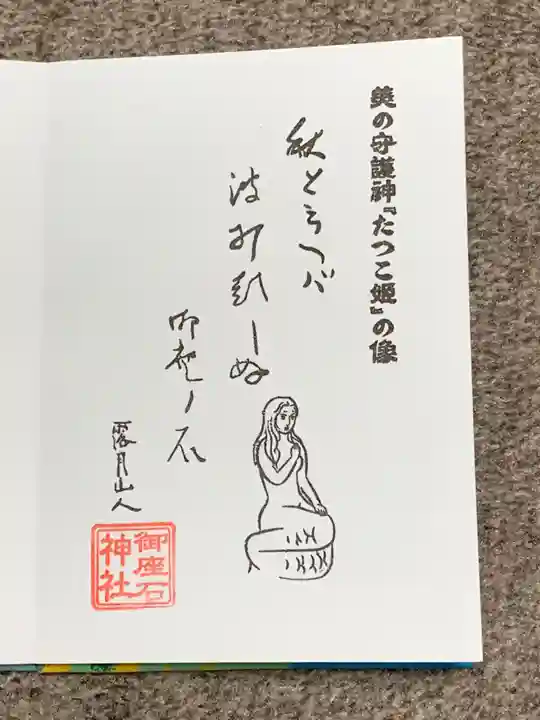 美の守護神『たつこ姫』の像
秋といへバ
波も打しぬ
御座ノ石
露月山人
御座石
神社